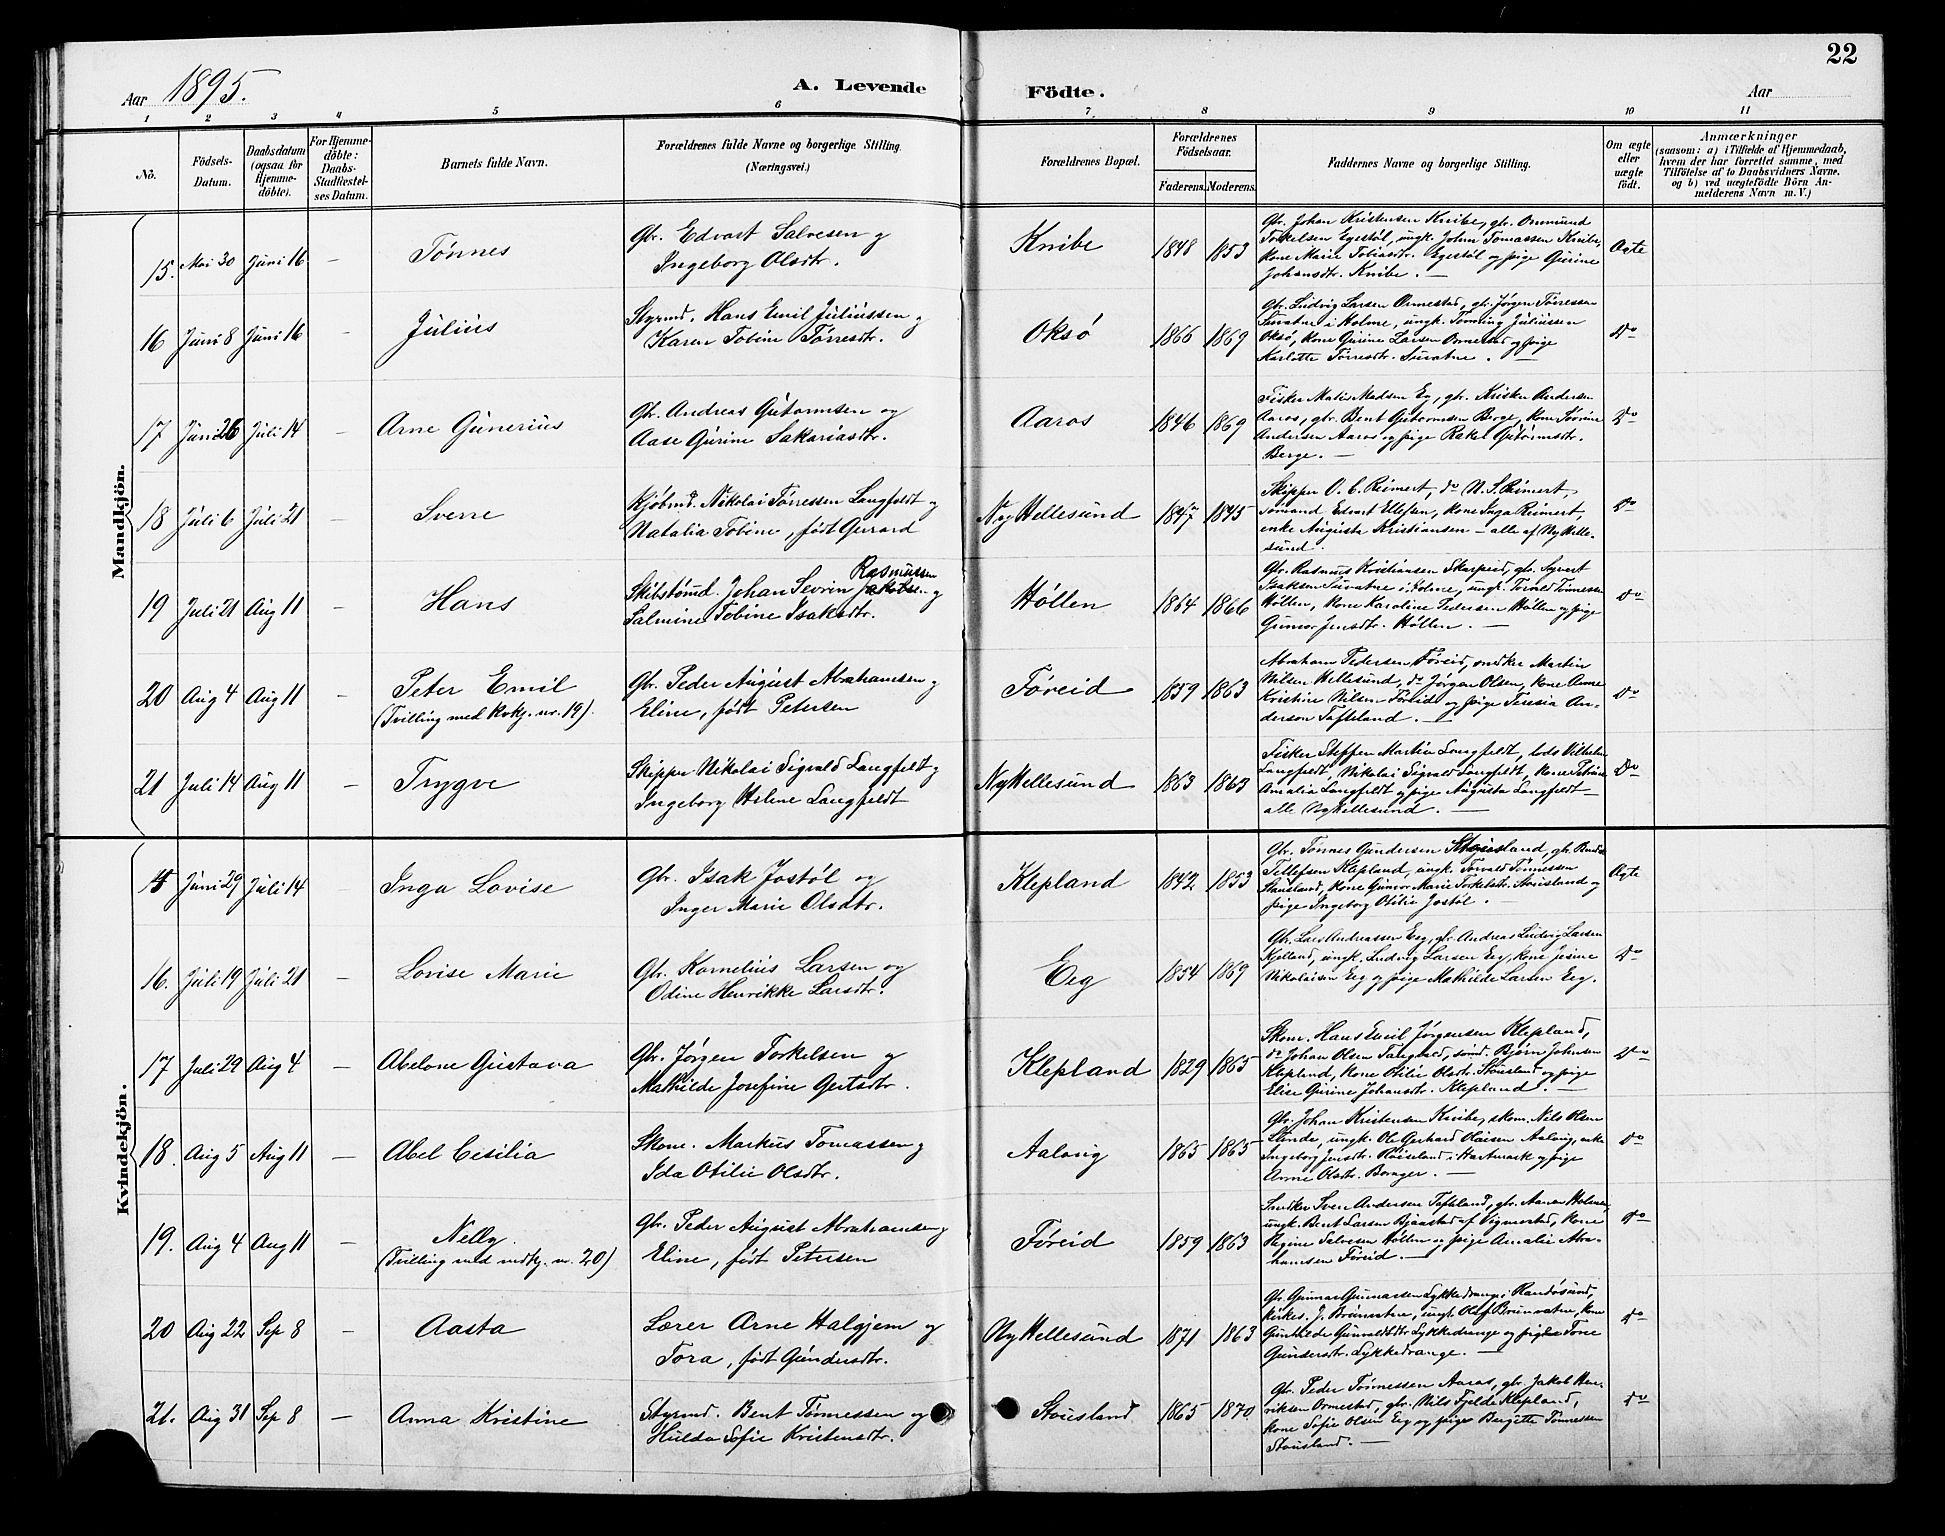 22
Aar 1895.
A. Levende Födte.
Aar
1 2 3 4 5 6 7 8 9 10 11
No.
Födsels-Datum.
Daabsdatum (ogsaa for Hjemme-döbte).
For Hjemme-döbte: Daabs-Stadfæstel-ses Datum.
Barnets fulde Navn.
Forældrenes fulde Navne og borgerlige Stilling.
(Næringsvei.)
Forældrenes Bopæl.
Forældrenes Födselsaar.
Faderens. Moderens.
Faddernes Navne og borgerlige Stilling.
Om ægte eller uægte født.
Anmærkninger
(saasom: a) i Tilfælde af Hjemmedaab, hvem der har forrettet samme, med Tilföielse af to Daabsvidners Navne. og b) ved uægtefödte Börn An-melderens Navn m. V.)
Mandkjön.
15. Mai 30 Juni 16 — Tønnes
Gbr. Edvart Salvesen og
Ingeborg Olsdtr.
Knibe 1848 1853
Gbr. Johan Kristensen Knibe, gbr. Ommund
Torkelsen Egestøl, ungk. Johan Tomassen Knibe,
kone Marie Tobiasdtr. Egestøl og pige Gurine
Johansdtr. Knibe. —
Ægte
16 Juni 8 Juni 16 — Julius
Styrmd. Hans Emil Juliussen og
Karen Tobine Tørresdtr.
Oksø 1866 1869
Gbr. Ludvig Larsen Ormestad, gbr. Jørgen Tørressen
i Holme, ungk. Tønning Juliussen
Oksø, kone Gurine Larsen Ormestad og pige
Karlotte Tørresdtr. —
Do
17 Juni 26 Juli 14 — Arne Gunerius
Gbr. Andreas Gutormsen og
Aase Gurine Sakariasdtr.
Aaros 1846 1869
Fisker Matis Madsen Eg, gbr. Kristen Andersen
Aaros, gbr. Bent Gutormsen Berge, kone
Andersen Aaros og pige Rakel Gutormsdtr.
Berge. —
Do
18 Juli 6 Juli 21 — Sverre
Kjøbmd. Nikolai Tørressen Langfeldt og
Natalia Tobine, født Gerrard
Ny Hellesund 1847 1845
Skipper O. C. Reimert, do N. S. Reimert,
sømand Edvart Ellefsen, kone Inga Reimert,
enke Augusta Kristiansen – alle af Ny Helle-
sund.
Do
19 Juli 21 Aug 11 — Hans
Rasmussen
Skibstømd. Johan Sevrin og
Salmine Tobine Isaksdtr.
Høllen 1864 1866
Gbr. Rasmus Kristiansen Skarpeid, gbr. Syvert
Isaksen i Holme, ungk. Tønnessen
Høllen, kone Karoline Pedersen Høllen og pige
Gunvor Jensdtr. Høllen. —
Do
20 Aug 4 Aug 11 — Peter Emil
(Tvilling med kvkj. nr. 19).
Gbr. Peder August Abrahamsen og
Eline, født Petersen
Føreid 1859 1863
Abraham Pedersen Føreid, snedker Martin
Nilsen Hellesund, do Jørgen Olsen, kone Anne
Kristine Nilsen Føreid og pige Teresia An-
dersen Tofteland. —
Do
21 Juli 14 Aug 11 — Trygve
Skipper Nikolai Sigvald Langfeldt og
Ingeborg Helene Langfeldt
Ny Hellesund 1863 1863
Fisker Steffen Martin Langfeldt, lods Vilhelm
Langfeldt, Nikolai Sigvald Langfeldt, kone
Amalia Langfeldt og pige Augusta Langfeldt –
alle Ny Hellesund. —
Do
Kvindekjön.
15 Juni 29 Juli 14 — Inga Lovise
Gbr. Isak Jostøl og
Inger Marie Olsdtr.
Klepland 1842 1853
Gbr. Tønnes Gundersen Stousland, gbr.
Tellefsen Klepland, ungk. Torvald Tønnessen
Stousland, kone Gunvor Marie Torkelsdtr. Stousland og
pige Ingeborg Otilie Jostøl. —
Ægte
16. Juli 19 Juli 21 — Lovise Marie
Gbr. Kornelius Larsen og
Odine Henrikke Larsdtr.
Eeg 1854 1869
Gbr. Lars Andreassen Eeg, gbr. Andreas Ludvig Larsen
Kjelland, ungk. Ludvig Larsen Eeg, kone Jesine
Nikolaisen Eeg og pige Mathilde Larsen Eeg.
Do
17 Juli 29 Aug 4 — Abelone Gustava
Gbr. Jørgen Torkelsen og
Mathilde Josefine Gertsdtr.
Klepland 1829 1865
Skom. Hans Emil Jørgensen Klepland,
do Johan Olsen Tangvald, sømd. Bjørn Johnsen
Klepland, kone Otilie Olsdtr. Stousland og pige
Elise Gurine Johansdtr. Klepland. —
Do
18. Aug 5 Aug 11 — Abel Cesilia
Skom. Markus Tomassen og
Ida Otilie Olsdtr.
Aalvig 1865 1865
Gbr. Johan Kristensen Knibe, skom. Nils Olsen
ungk. Ole Gerhard Olaisen Aalvig, enke
Ingeborg Jensdtr. i Hartmark og pige
Anne Olsdtr. —
Do
19. Aug 4 Aug 11 — Nelly.
(Tvilling med mdkj. nr. 20)
Gbr. Peder August Abrahamsen og
Eline, født Petersen
Føreid 1859 1863
Snedker Sven Andersen Tofteland, gbr. Aanen Holmen,
ungk. Bent Larsen Bjaastad af Vigmostad, kone
Regine Salvesen Høllen og pige Amalie Abra-
hamsen Føreid. —
Do
20 Aug 22 Sep 8 — Aasta
Lærer Arne Halgjem og
Tora, født Gundersdtr.
Ny Hellesund 1871 1863
Gbr. Gunnar Gunnarsen Lykkedrange i Randøsund,
kirkes. J. Brunvatne, ungk. Olaf Brunvatne, kone
Gunhilde Gunvaldsdtr Lykkedrange og pige Tone
Gundersdtr. Lykkedrange. —
Do
21. Aug 31 Sep 8 — Anna Kristine
Styrmd. Bent Tønnessen og
Hulda Sofie Kristensdtr.
Stousland 1865 1870
Gbr. Peder Tønnessen Aaros, gbr. Jakob Hen-
riksen Ormestad, gbr. Nils Fjelde Klepland,
kone Sofie Olsen Eeg og pige Bergitte Tønnessen
Stousland. —
Do